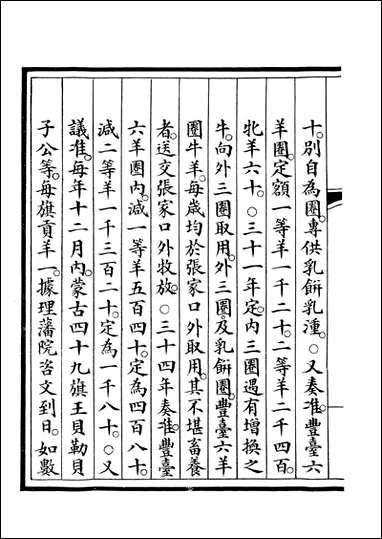 十。別自為圈。專供乳餅乳湩。○又奏准。豐臺六
羊圈。定額一等羊一千二十。二等羊二千四百。
牝羊六十。○三十一年定。內三圈遇有增換之
牛。向外三圈取用。外三圈。及乳餅圈。豐臺六羊
圈牛羊。每歲均於張家口外取用。其不堪畜養
者。送交張家口外牧放。○三十四年奏准。豐臺
六羊圈內。減一等羊五百四十。定為四百八十。
減二等羊一千三百二十。定為一千八十。○又
議准。每年十二月內。蒙古四十九旗王貝勒貝
子公等。每旗貢羊一。據理藩院咨文到日。如數